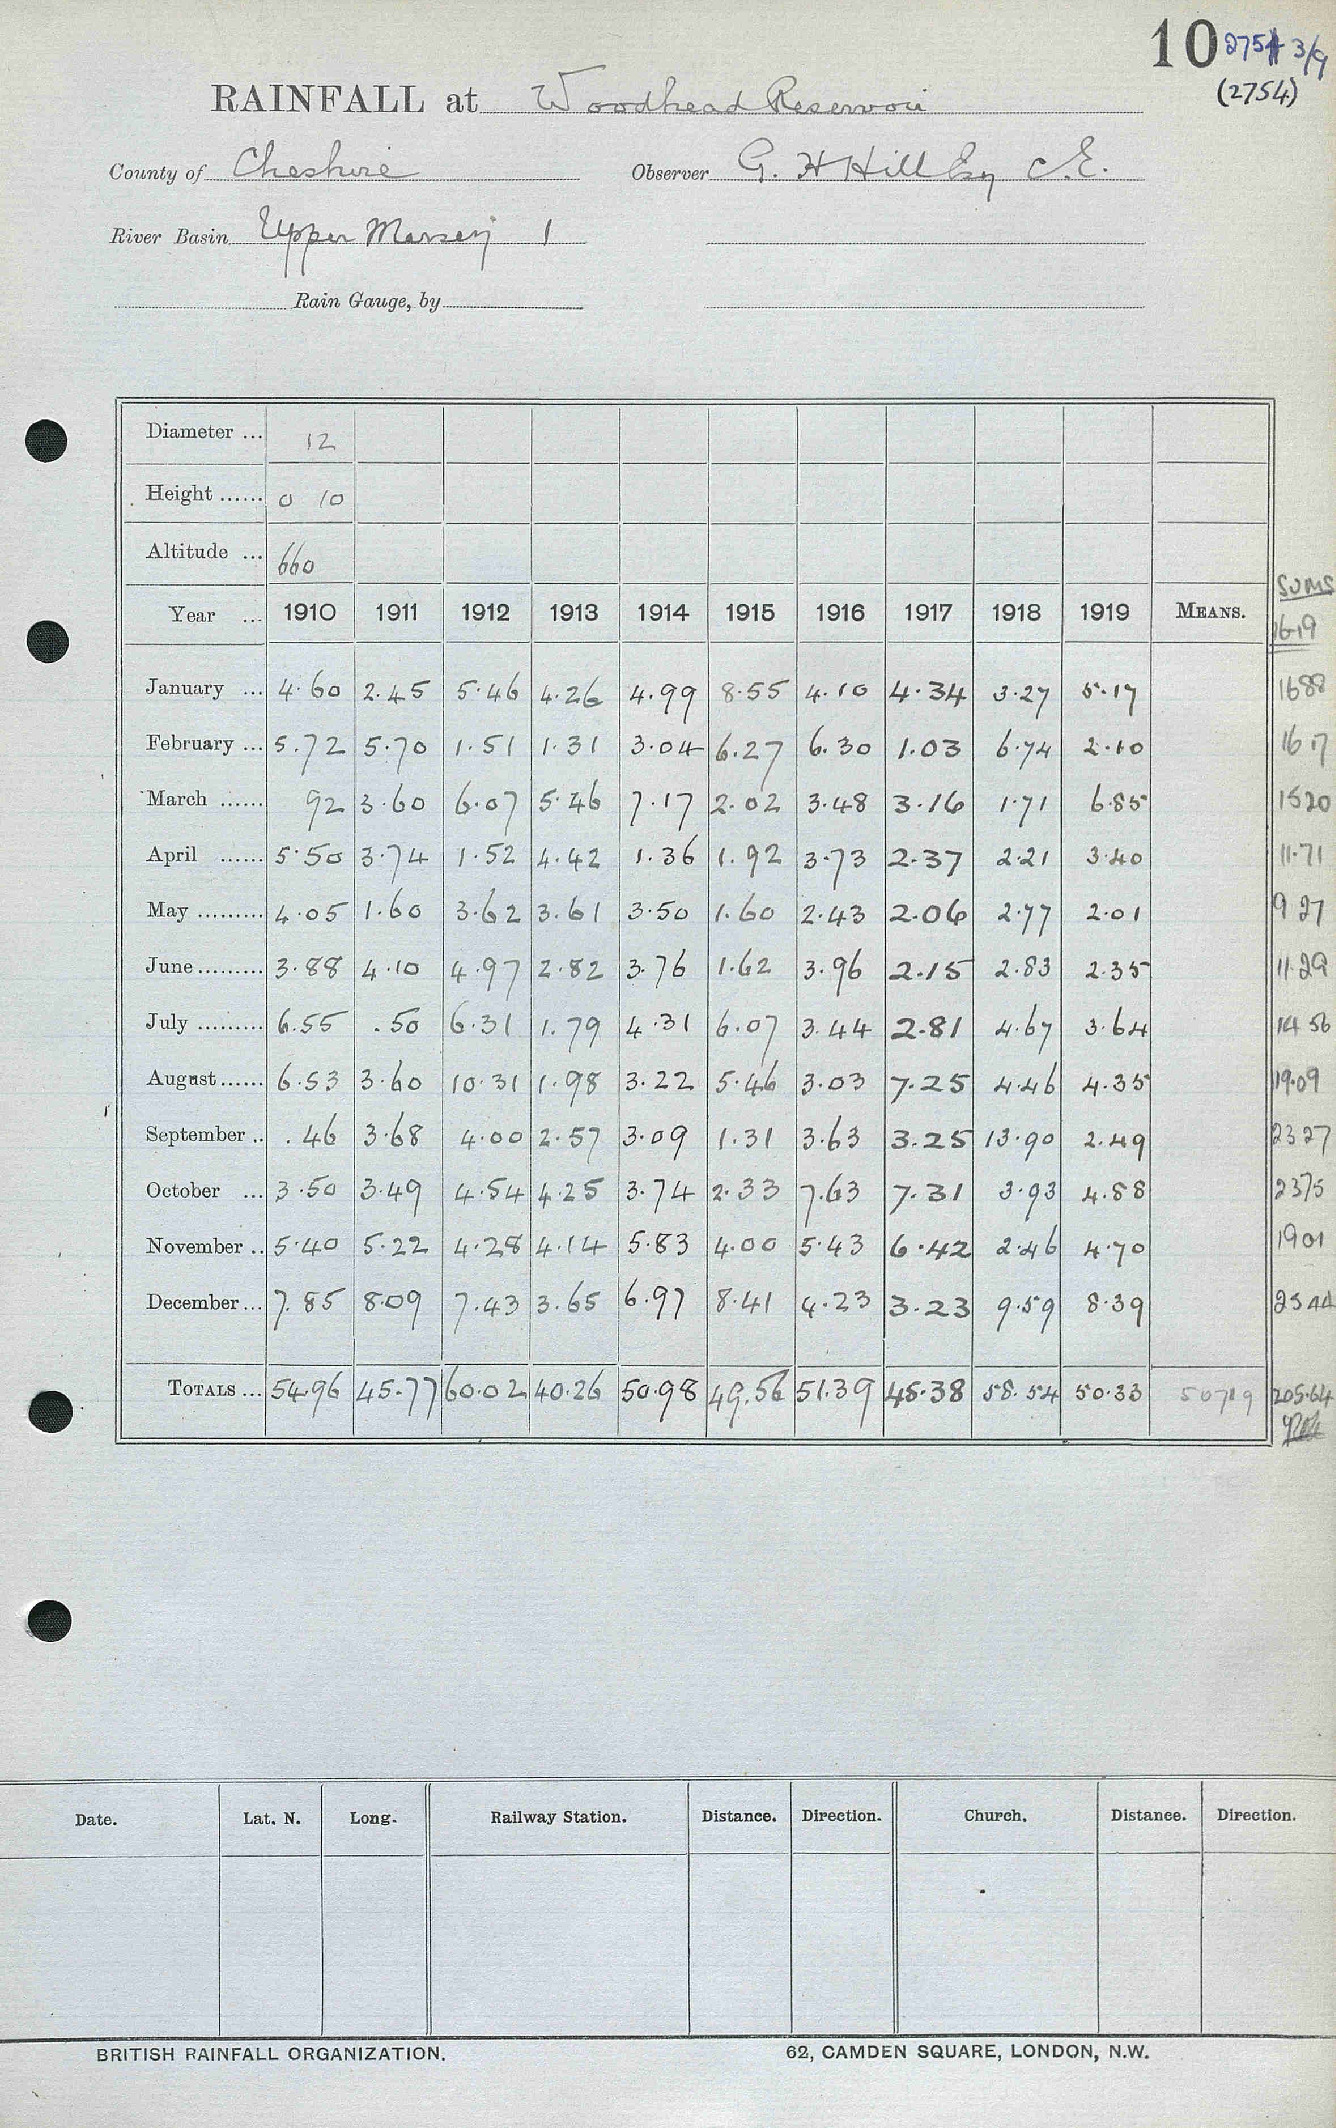 10 2754 3/9
(2754)
RAINFALL at Woodhead Reservoir
County of Cheshire Observer G. H Hill Esq C.E.
River Basin Upper Mersey 1
Rain Gauge, by
Diameter ... 12
Height ...... 0 10
Altitude ... 660
SUMS
Year ... 1910 1911 1912 1913 1914 1915 1916 1917 1918 1919 MEANS. 16-19
January ... 4.60 2.45 5.46 4.26 4.99 8.55 4.10 4.34 3.27 5.17 1688
February ... 5.72 5.70 1.51 1.31 3.04 6.27 6.30 1.03 6.74 2.10 16 17
March ...... 92 3.60 6.07 5.46 7.17 2.02 3.48 3.16 1.71 6.85 1520
April ...... 5.50 3.74 1.52 4.42 1.36 1.92 3.73 2.37 2.21 3.40 11.71
May ......... 4.05 1.60 3.62 3.61 3.50 1.60 2.43 2.06 2.77 2.01 9 27
June ......... 3.88 4.10 4.97 2.82 3.76 1.62 3.96 2.15 2.83 2.35 11.29
July ......... 6.55 .50 6.31 1.79 4.31 6.07 3.44 2.81 4.67 3.64 14 56
August ...... 6.53 3.60 10.31 1.98 3.22 5.46 3.03 7.25 4.46 4.35 19.09
September .. .46 3.68 4.00 2.57 3.09 1.31 3.63 3.25 13.90 2.49 23 27
October ... 3.50 3.49 4.54 4.25 3.74 2.33 7.63 7.31 3.93 4.88 2375
November .. 5.40 5.22 4.28 4.14 5.83 4.00 5.43 6.42 2.46 4.70 1901
December ... 7.85 8.09 7.43 3.65 6.97 8.41 4.23 3.23 9.59 8.39 2544
TOTALS ... 54.96 45.77 60.02 40.26 50.98 49.56 51.39 45.38 58.54 50.33 50719 205.64
Date. Lat. N. Long. Railway Station. Distance. Direction. Church. Distance. Direction.
BRITISH RAINFALL ORGANIZATION. 62, CAMDEN SQUARE, LONDON, N.W.